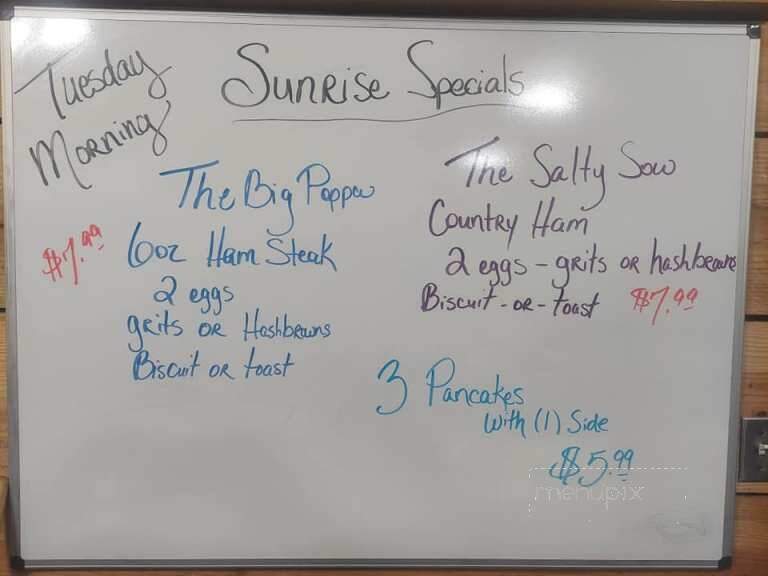 Tuesday
Morning
Sunrise Specials
The Big Poppa
$7.99
6oz Ham Steak
2 eggs
grits or Hashbrowns
Biscuit or toast
The Salty Sow
Country Ham
2 eggs - grits or hashbrowns
Biscuit - or - toast $7.99
3 Pancakes
with (1) Side
$5.99
menupix